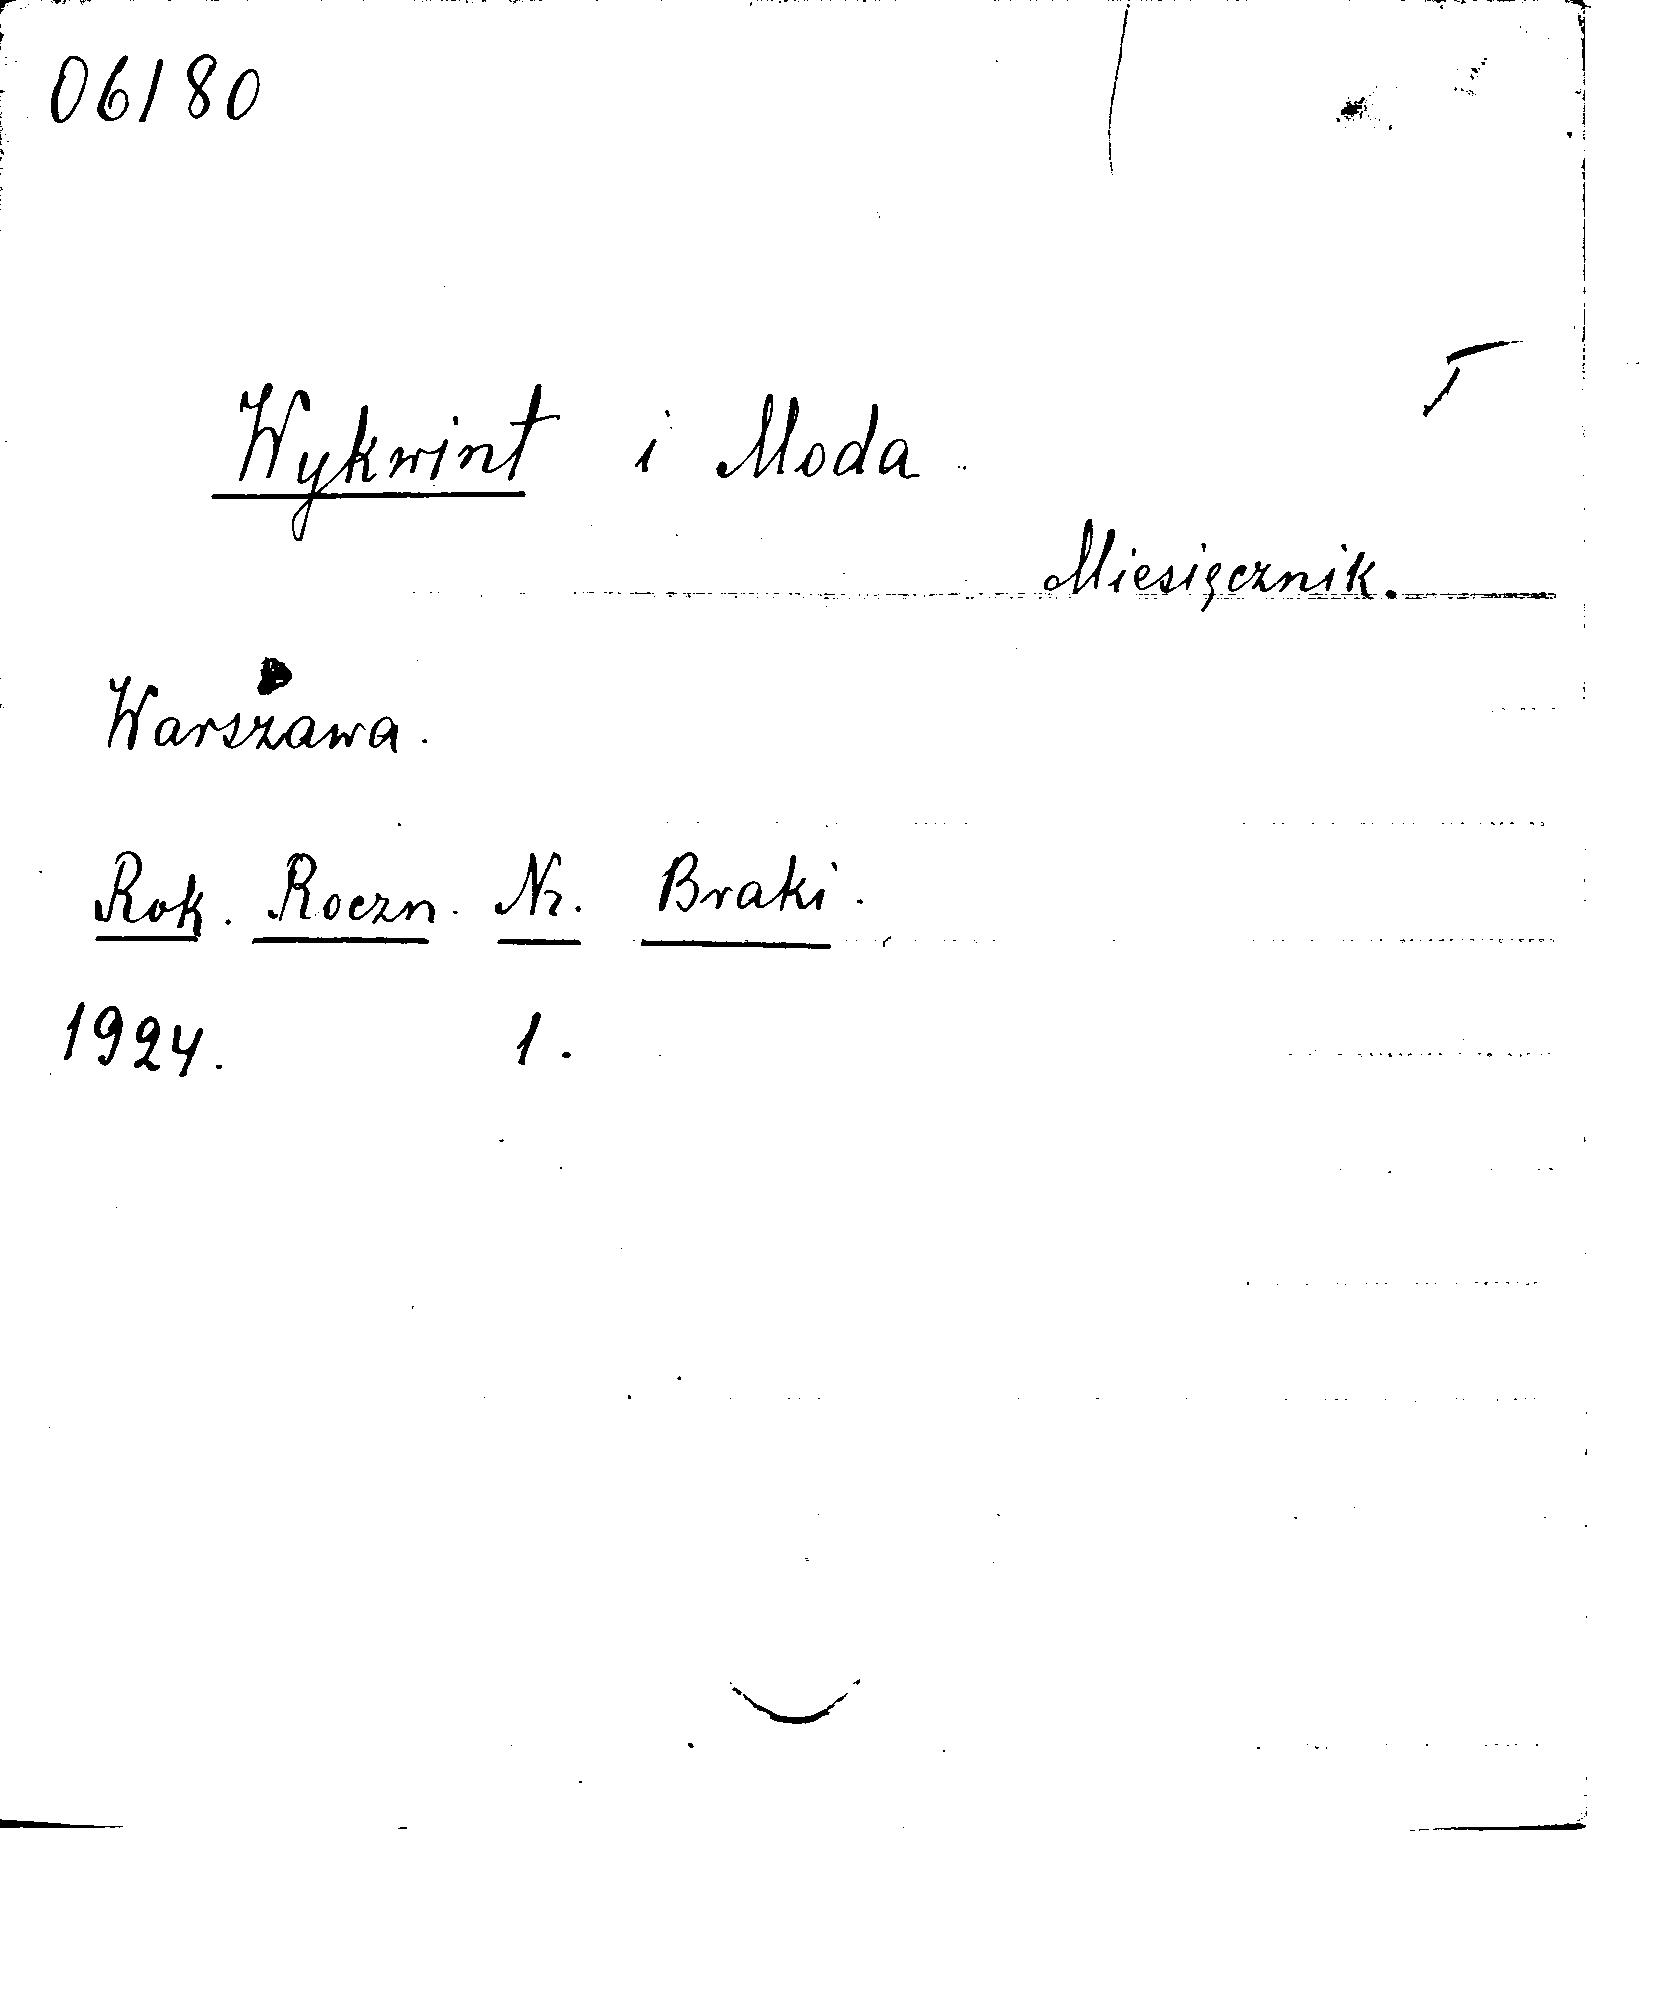 06180
Wykwint i Moda
Miesięcznik.
Warszawa.
Rok. Roczn. Nr. Braki.
1924. 1.